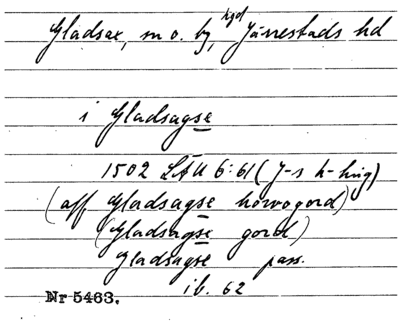 Gladsax, sn o. by, hgd Järrestads hd
i Gladsagse
1502 LÄU 6:61 (J-s h-ting)
(aff Gladsagse howogord)
(Gladsagse gord)
Gladsagse pass.
ib. 62
Nr 5463.